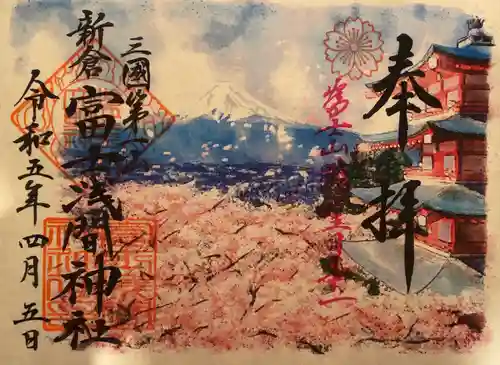 奉拝
三國第一
新倉富士浅間神社
令和五年四月五日